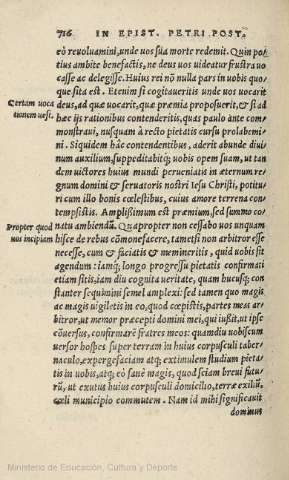 716 IN EPIST. PETRI POST.
eò reuoluamini, unde uos sua morte redemit. Quin po⸗
tius ambite benefactis, ne deus uos uideatur frustra uo
casse ac delegisse. Huius rei nõ nulla pars in uobis quo⸗
que sita est. Etenim si cogitaueritis unde uos uocarit
Certam uoca
deus, ad quæ uocarit, quæ præmia proposuerit, & si ad
tionem uestr.
hæc ijs rationibus contenderitis, quas paulo ante com⸗
monstraui, nusquam à recto pietatis cursu prolabemi⸗
ni. Siquidem hâc contendentibus, aderit abunde diui⸗
num auxilium, suppeditabitq; uobis opem suam, ut tan
dem uictores huius mundi perueniatis in æternum re⸗
gnum domini & seruatoris nostri Iesu Christi, potitu⸗
ri cum illo bonis cœlestibus, cuius amore terrena con⸗
tempsistis. Amplissimum est præmium, sed summo co⸗
Propter quod
natu ambiendũ. Quapropter non cessabo uos unquam
nos incipiam
hisce de rebus cõmonefacere, tametsi non arbitror esse
necesse, cum & faciatis & memineritis, quid uobis sit
agendum : iamq; longo progressu pietatis confirmati
etiam sitis, iam diu cognita ueritate, quam hucusq; con
stanter sequimini semel amplexi: sed tamen quo magis
ac magis uigiletis in eo, quod cœpistis, partes meas ar⸗
bitror, ut memor præcepti domini mei, qui iussit, ut ipse
cõuersus, confirmarẽ fratres meos: quamdiu uobiscum
uersor hospes super terram in huius corpusculi taber⸗
naculo, expergefaciam atq; extimulem studium pieta⸗
tis in uobis, atq; eò sanè magis, quod sciam breui futu⸗
rũ, ut exutus huius corpusculi domicilio, terræ exiliũ,
cœli municipio commutem. Nam id mihi significauit
dominus
Ministerio de Educación, Cultura y Deporte